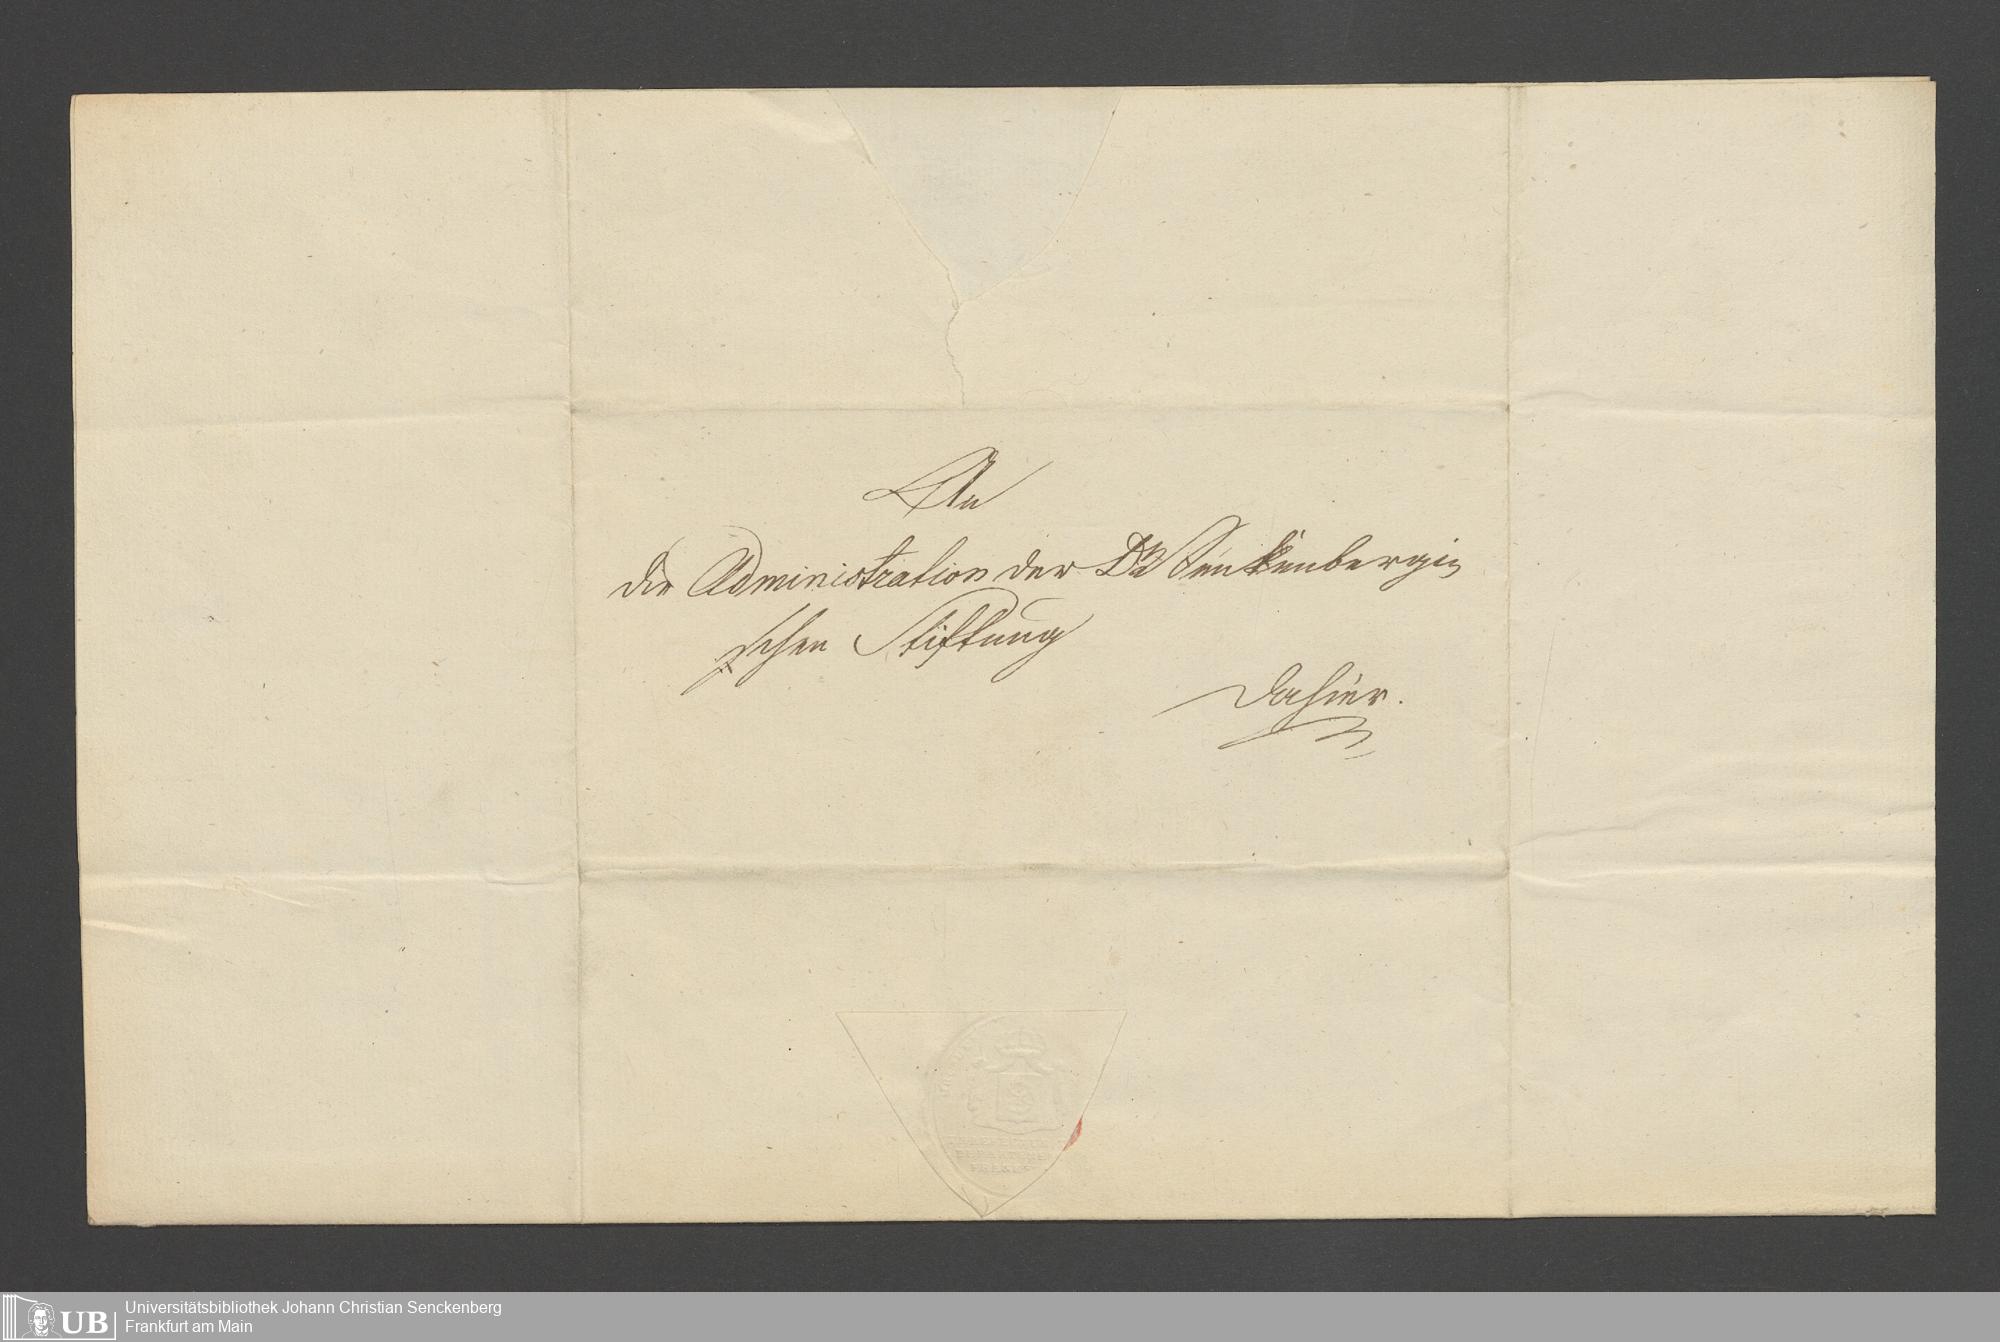 An
die Administration der Dr Senkenbergi=
schen Stiftung
dahier.
UB
Universitätsbibliothek Johann Christian Senckenberg
Frankfurt am Main